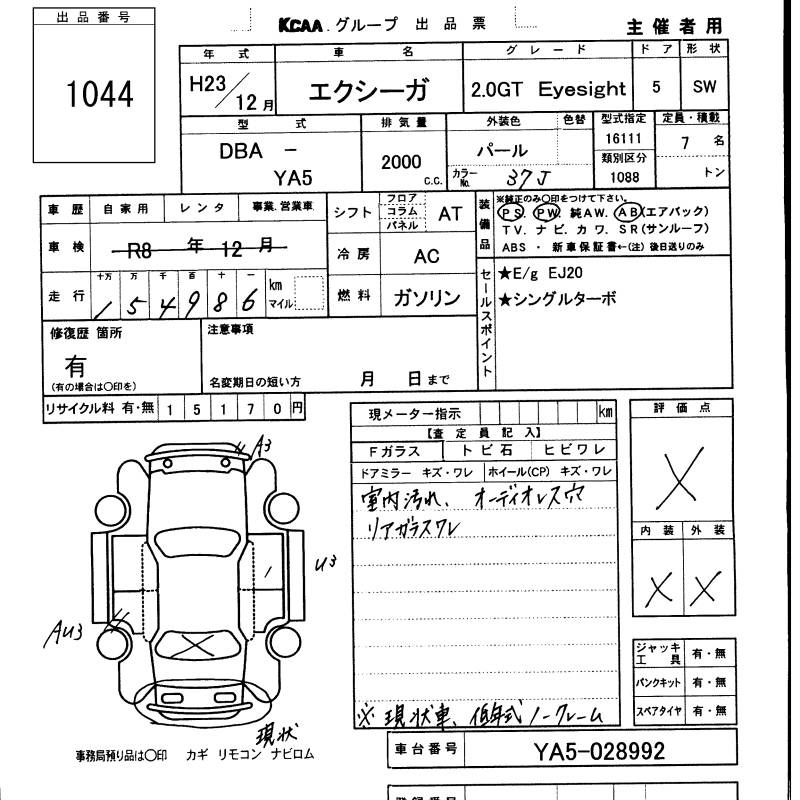 出品番号
1044
KCAA グループ 出品票
主催者用
年式 車名 グレード ドア 形状
H23/12月 エクシーガ 2.0GT Eyesight 5 SW
型式 排気量 外装色 色替 型式指定 定員・積載
DBA - YA5 2000 C.C. パール 16111 7名
カラーNo. 37J 類別区分 1088 トン
車歴 自家用 レンタ 事業.営業車
車検 R8年12月
走行 十万 万 千 百 十 一
154986 km マイル
シフト フロア コラム パネル AT
冷房 AC
燃料 ガソリン
装備品
※純正のみ○印をつけて下さい。
PS. PW. 純AW. AB(エアバック)
TV. ナビ. カワ. SR(サンルーフ)
ABS ・ 新車保証書←(注) 後日送りのみ
セールスポイント
★E/g EJ20
★シングルターボ
修復歴 箇所
有
(有の場合は○印を)
注意事項
名変期日の短い方 月 日まで
リサイクル料 有・無 15170円
現メーター指示 km
【査定員記入】
Fガラス トビ石 ヒビワレ
ドアミラー キズ・ワレ ホイール(CP) キズ・ワレ
室内汚れ、オーディオレス穴
リアガラスワレ
※ 現状車、低年式ノークレーム
評価点
X
内装 外装
X X
A3
U3
AU3
現状
ジャッキ工具 有・無
パンクキット 有・無
スペアタイヤ 有・無
事務局預り品は○印 カギ リモコン ナビロム
車台番号 YA5-028992